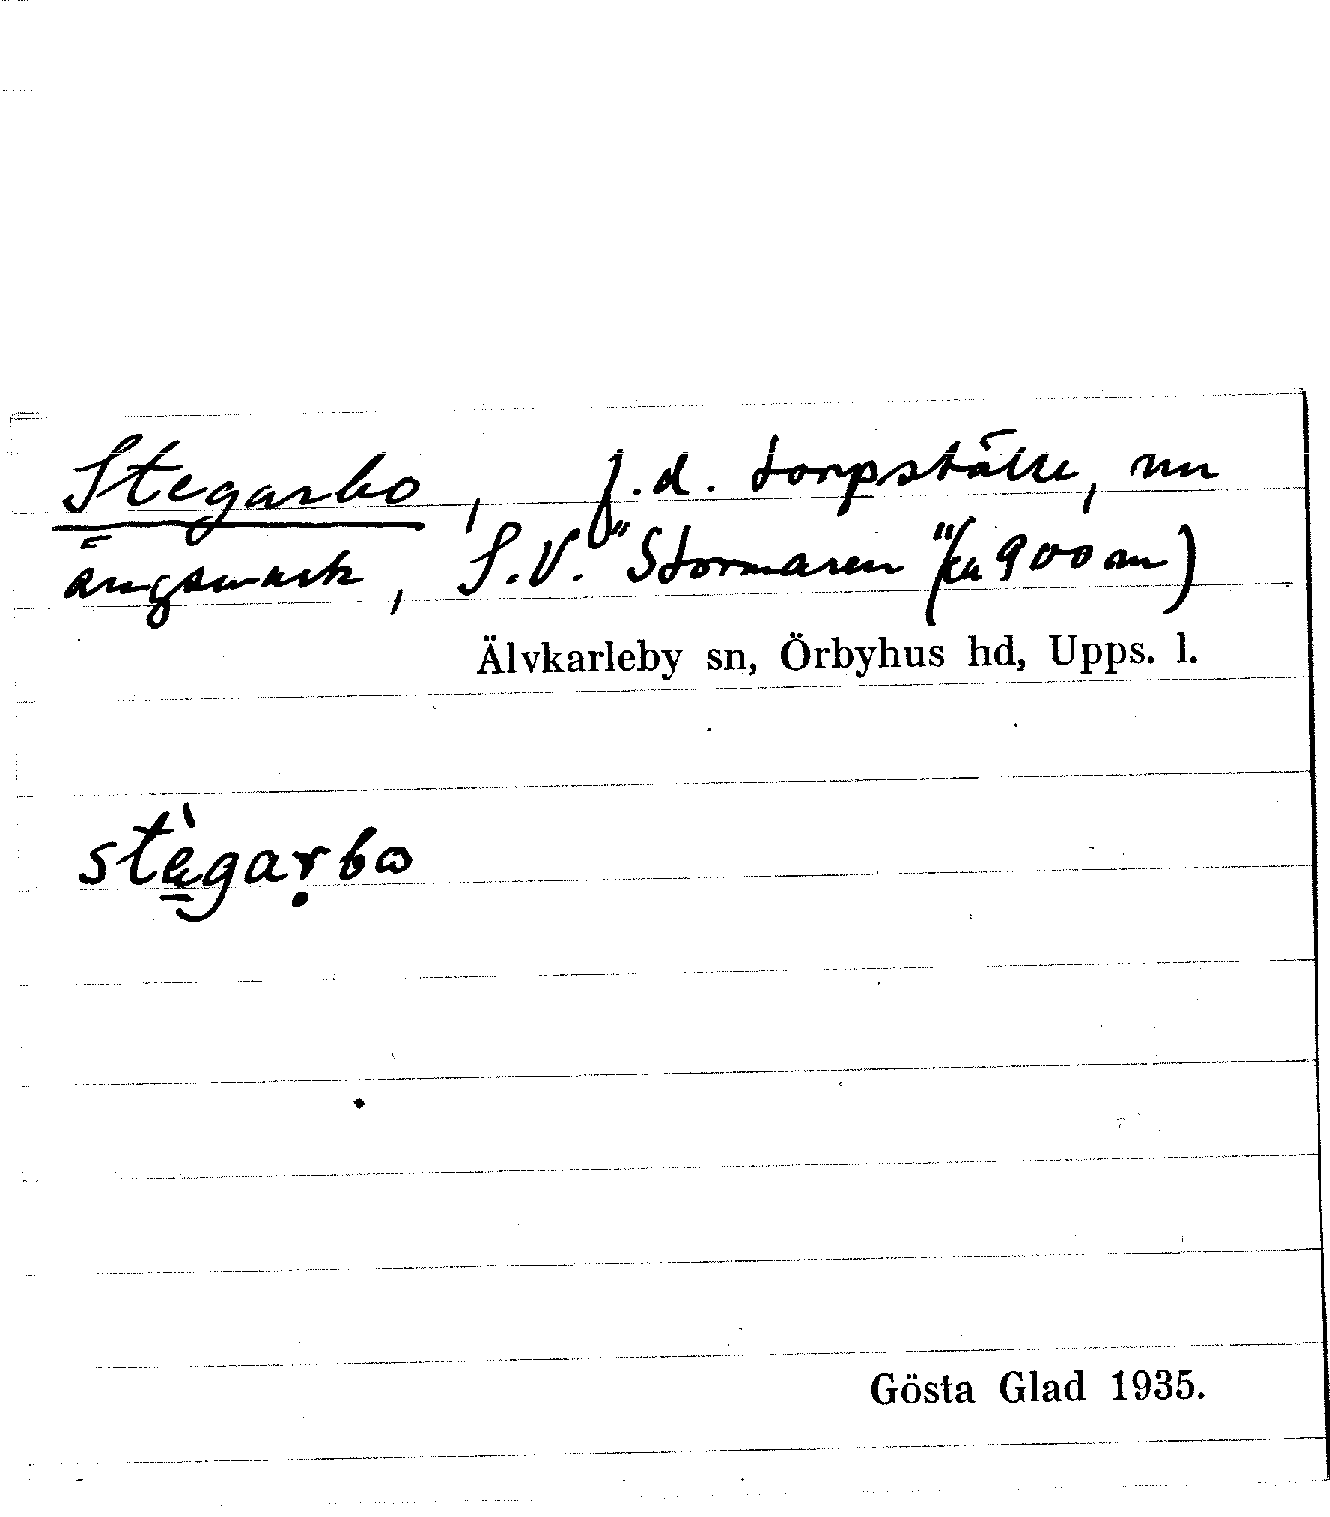 Stegarbo, f.d. torpställe, nu
ängsmark, S.V. "Stormaren" (ca 900 m)
Älvkarleby sn, Örbyhus hd, Upps. l.
stègaṛbɷ
Gösta Glad 1935.